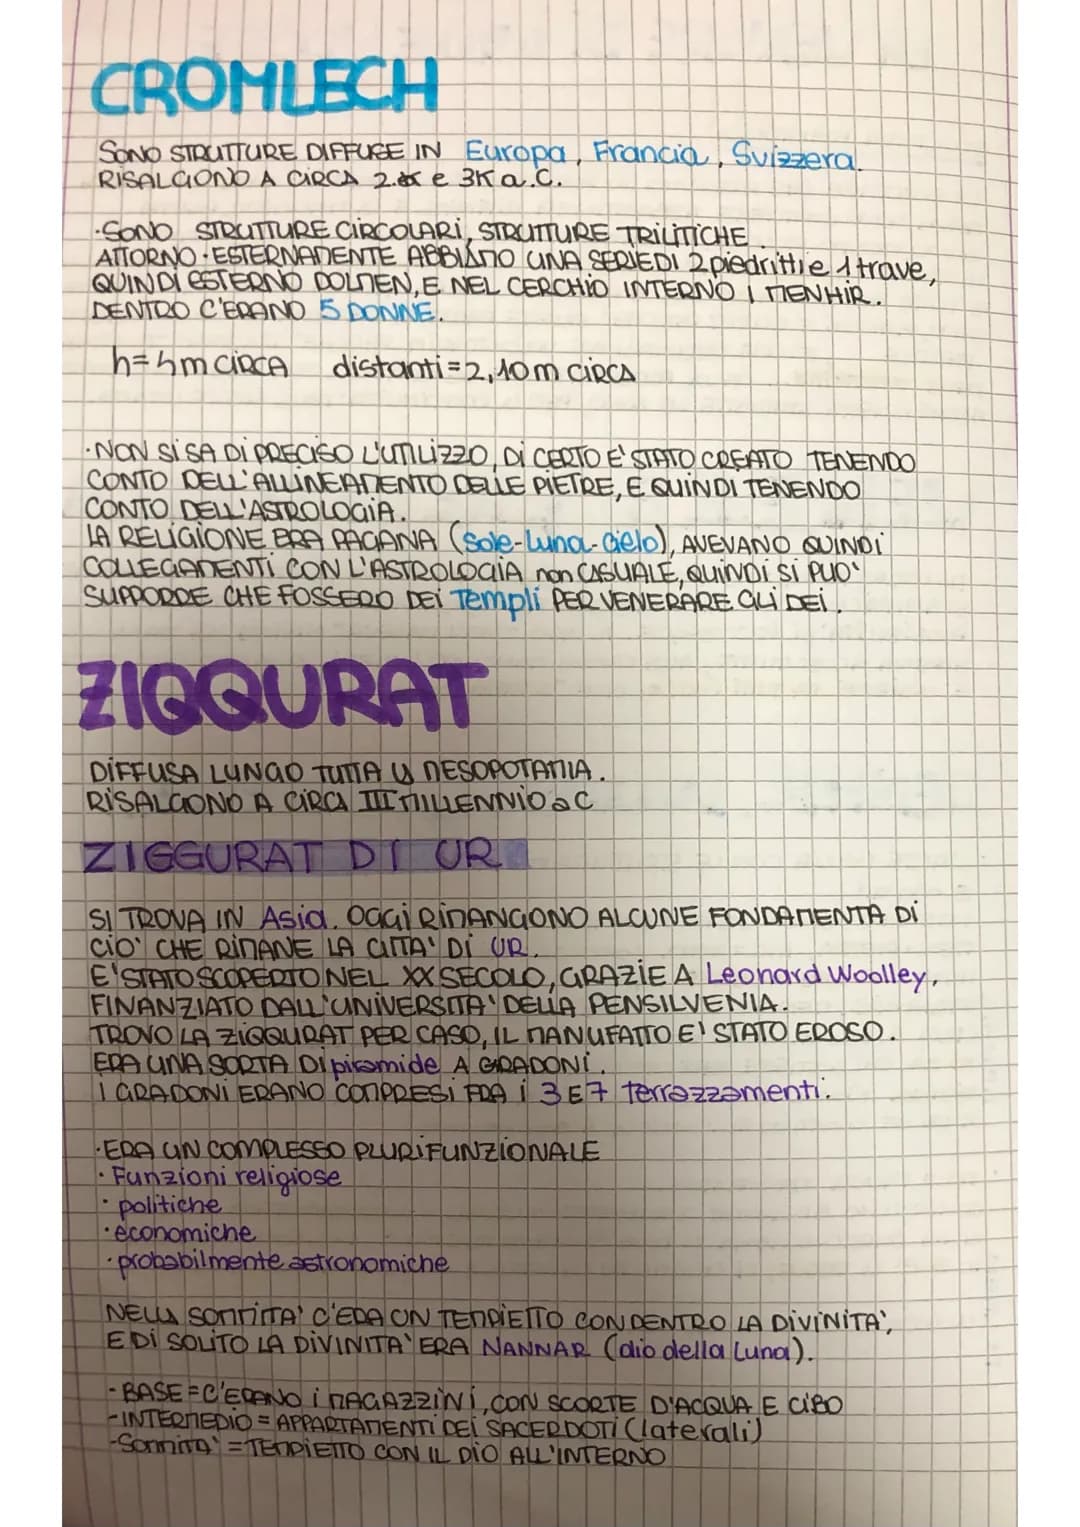 CROMLECH
SONO STRUTTURE DIFFUSE IN Europa, Francia, Svizzera.
RISALGONO A CIRCA 2. e 3K a.C.
·SONO STRUTTURE CIRCOLARI, STRUTTURE TRILITICHE.
ATTORNO·ESTERNAMENTE ABBIAMO UNA SERIE DI 2 piedritti e 1 trave,
QUINDI ESTERNO DOLMEN, E NEL CERCHIO INTERNO I MENHIR.
DENTRO C'ERANO 5 DONNE.
h=4m CIRCA distanti=2,10m CIRCA
·NON SI SA DI PRECISO L'UTILIZZO, DI CERTO E' STATO CREATO TENENDO
CONTO DELL'ALLINEAMENTO DELLE PIETRE, E QUINDI TENENDO
CONTO DELL'ASTROLOGIA.
LA RELIGIONE ERA PAGANA (Sole-Luna-cielo), AVEVANO QUINDI
COLLEGAMENTI CON L'ASTROLOGIA non CASUALE, QUINDI SI PUO'
SUPPORRE CHE FOSSERO DEI Templi PER VENERARE GLI DEI.
ZIQQURAT
DIFFUSA LUNGO TUTTA LA MESOPOTAMIA.
RISALGONO A CIRCA III MILLENNIO a C
ZIGGURAT DI UR
SI TROVA IN Asia. OGGI RIMANGONO ALCUNE FONDAMENTA DI
CIO' CHE RIMANE LA CITTA' DI UR.
E' STATO SCOPERTO NEL XX SECOLO, GRAZIE A Leonard Woolley,
FINANZIATO DALL'UNIVERSITA' DELLA PENSILVENIA.
TROVO LA ZIQQURAT PER CASO, IL MANUFATTO E' STATO EROSO.
ERA UNA SORTA DI piramide A GRADONI.
I GRADONI ERANO COMPRESI FRA I 3 E 7 terrazzamenti.
·ERA UN COMPLESSO PLURIFUNZIONALE
· Funzioni religiose
· politiche
· economiche
· probabilmente astronomiche
NELLA SOMMITA' C'ERA UN TEMPIETTO CON DENTRO LA DIVINITA',
E DI SOLITO LA DIVINITA' ERA NANNAR (dio della Luna).
-BASE = C'ERANO I MAGAZZINI, CON SCORTE D'ACQUA E CIBO
-INTERMEDIO = APPARTAMENTI DEI SACERDOTI (laterali)
-SOMMITA' = TEMPIETTO CON IL DIO ALL'INTERNO